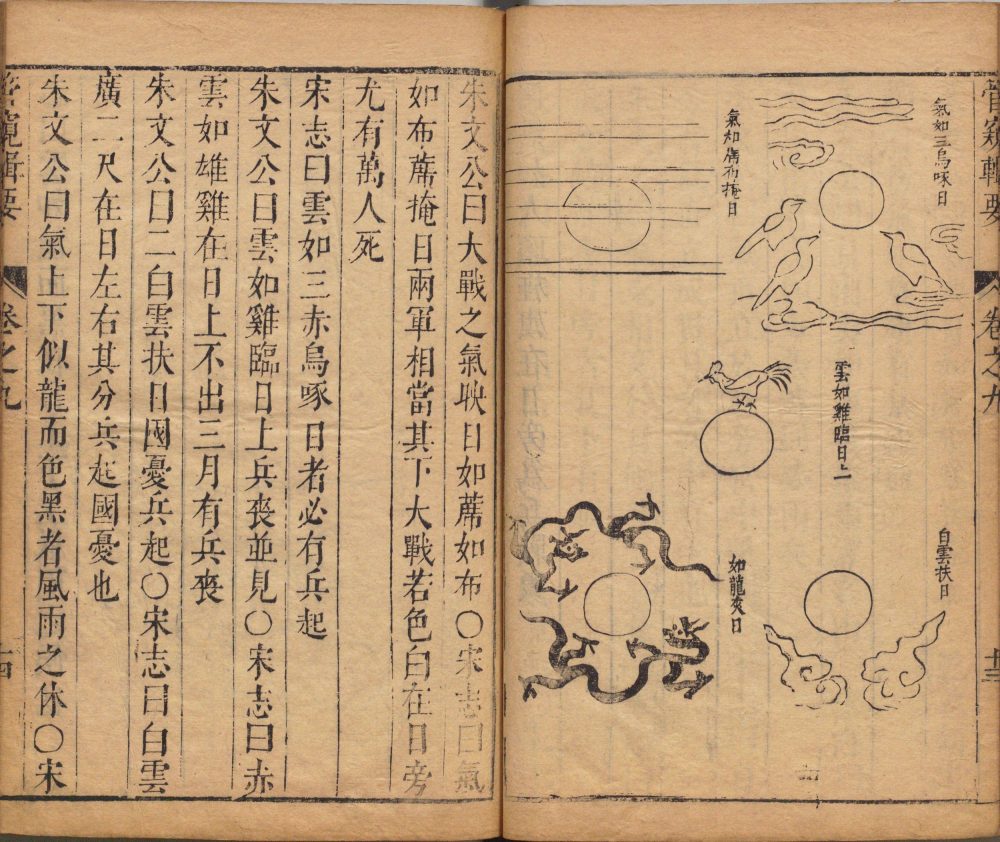 管窺輯要
卷之九
十三
氣如三烏啄日
氣如蓆布掩日
雲如雞臨日上
白雲扶日
如龍夾日
朱文公曰大戰之氣映日如蓆如布○宋志曰氣
如布蓆掩日兩軍相當其下大戰若色白在日旁
尤有萬人死
宋志曰雲如三赤烏啄日者必有兵起
朱文公曰雲如雞臨日上兵喪並見○宋志曰赤
雲如雄雞在日上不出三月有兵喪
朱文公曰二白雲扶日國憂兵起○宋志曰白雲
廣二尺在日左右其分兵起國憂也
朱文公曰氣上下似龍而色黑者風雨之休○宋
管窺輯要
卷之九
十四